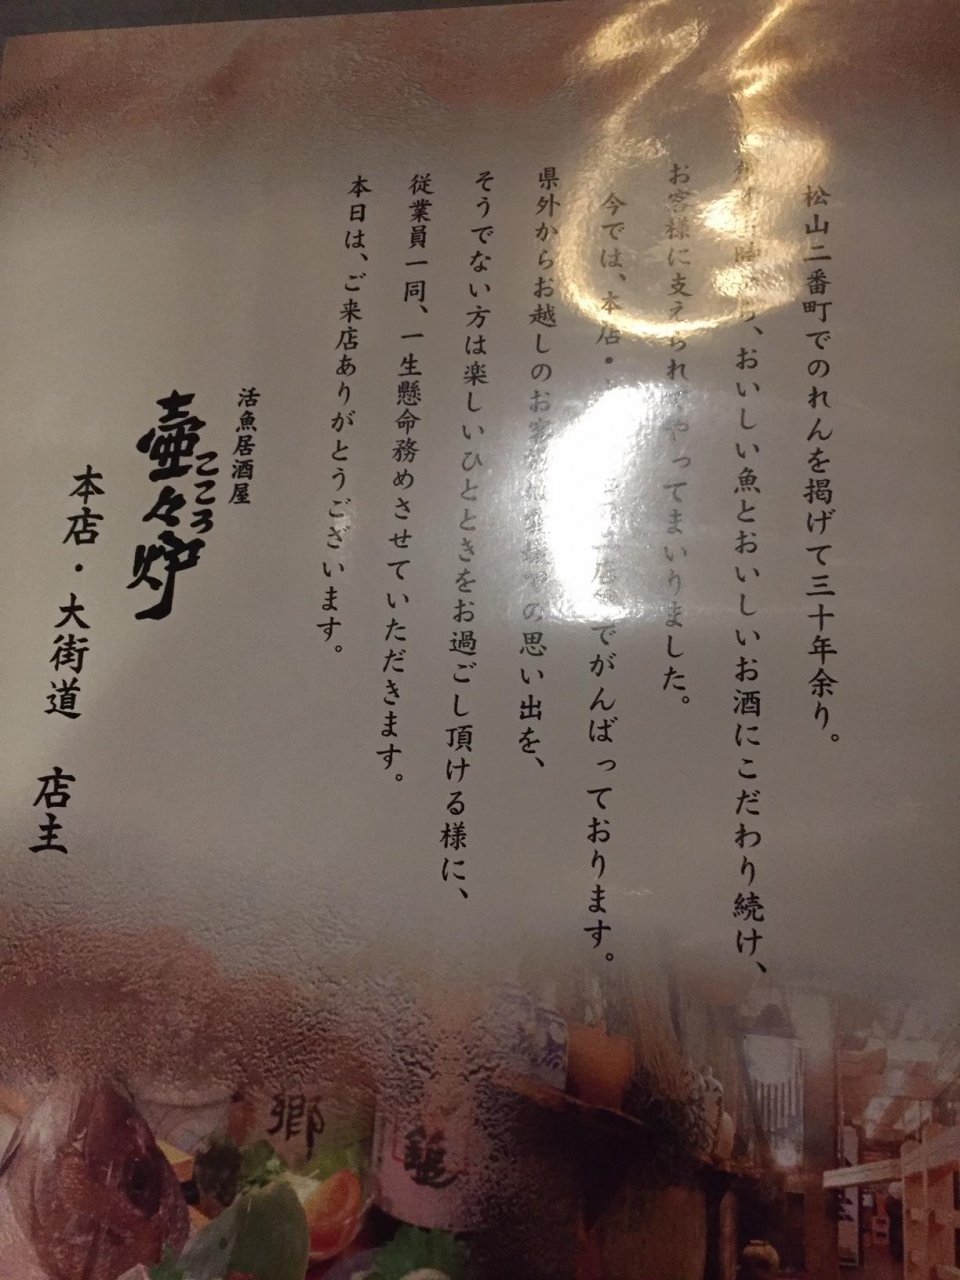 松山二番町でのれんを掲げて三十年余り。
創業当時から、おいしい魚とおいしいお酒にこだわり続け、
お客様に支えられてやってまいりました。
今では、本店・ 店 でがんばっております。
県外からお越しのお客様 の思い出を、
そうでない方は楽しいひとときをお過ごし頂ける様に、
従業員一同、一生懸命務めさせていただきます。
本日は、ご来店ありがとうございます。
活魚居酒屋
壺々炉
こころ
本店・大街道 店主
郷